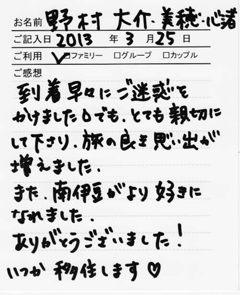 お名前 野村 大介・美穂・心渚
ご記入日 2013 年 3 月 25 日
ご利用 ☑ファミリー □グループ □カップル
ご感想
到着早々にご迷惑を
かけました。でも、とても親切に
して下さり、旅の良き思い出が
増えました。
また、南伊豆がより好きに
なれました。
ありがとうございました!
いつか移住します♡